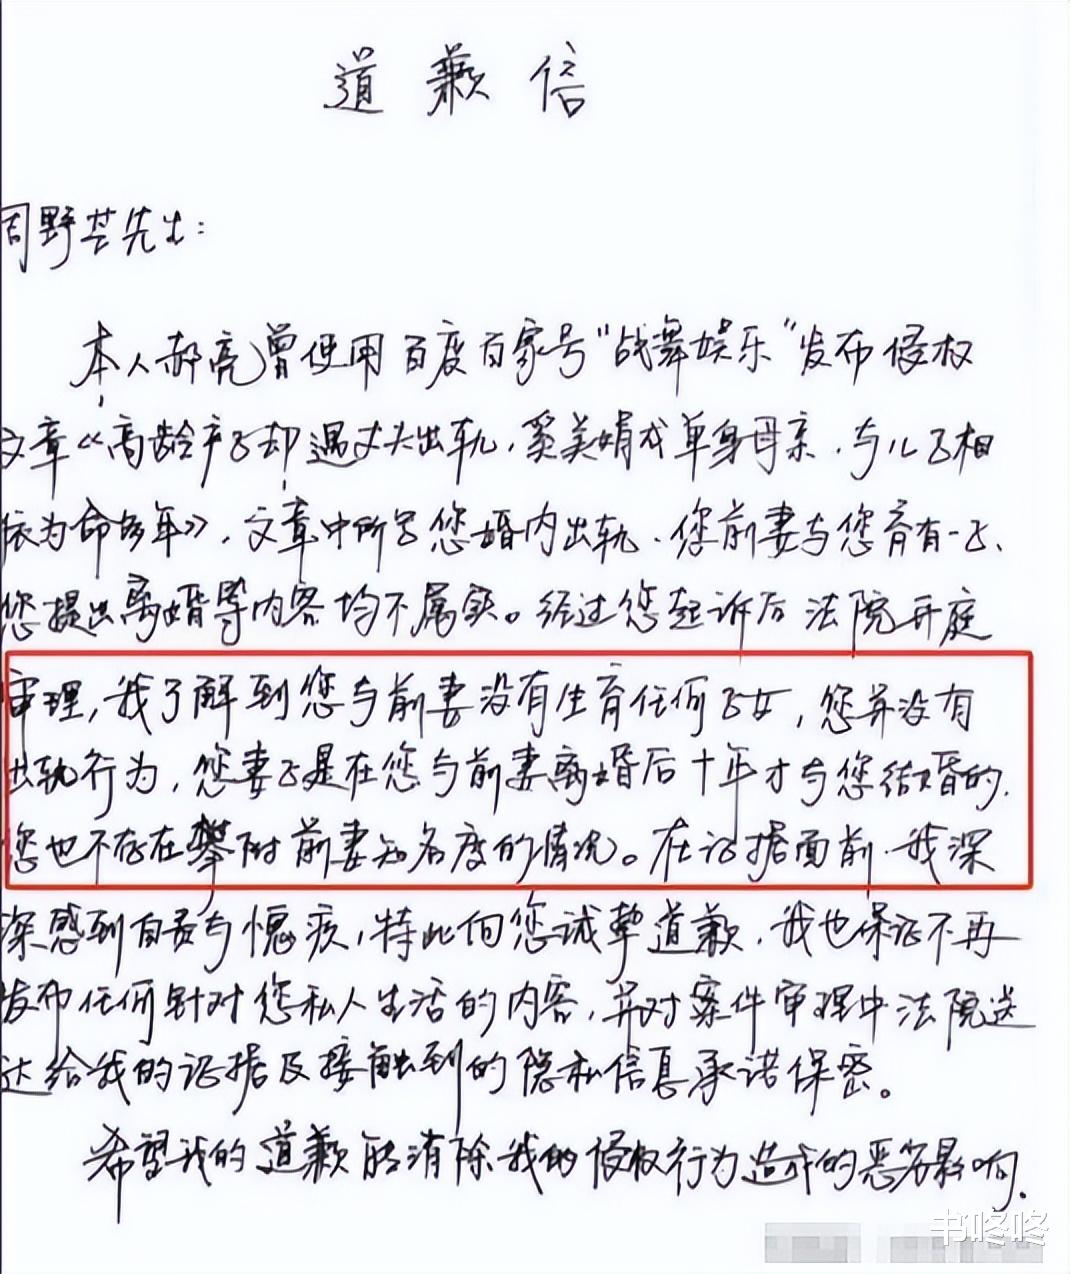 道歉信
周野芒先生：
本人郝亮曾使用百度百家号“战舞娱乐”发布侵权
文章《高龄产子却遇丈夫出轨，奚美娟成单身母亲，与儿子相
依为命多年》，文章中所写您婚内出轨、您前妻与您育有一子、
您提出离婚等内容均不属实。经过您起诉后法院开庭
审理，我了解到您与前妻没有生育任何子女，您并没有
出轨行为，您妻子是在您与前妻离婚后十年才与您结婚的，
您也不存在攀附前妻知名度的情况。在证据面前，我深
深感到自责与愧疚，特此向您诚挚道歉，我也保证不再
发布任何针对您私人生活的内容，并对案件审理中法院送
达给我的证据及接触到的隐私信息承诺保密。
希望我的道歉能消除我的侵权行为造成的恶劣影响。
书咚咚